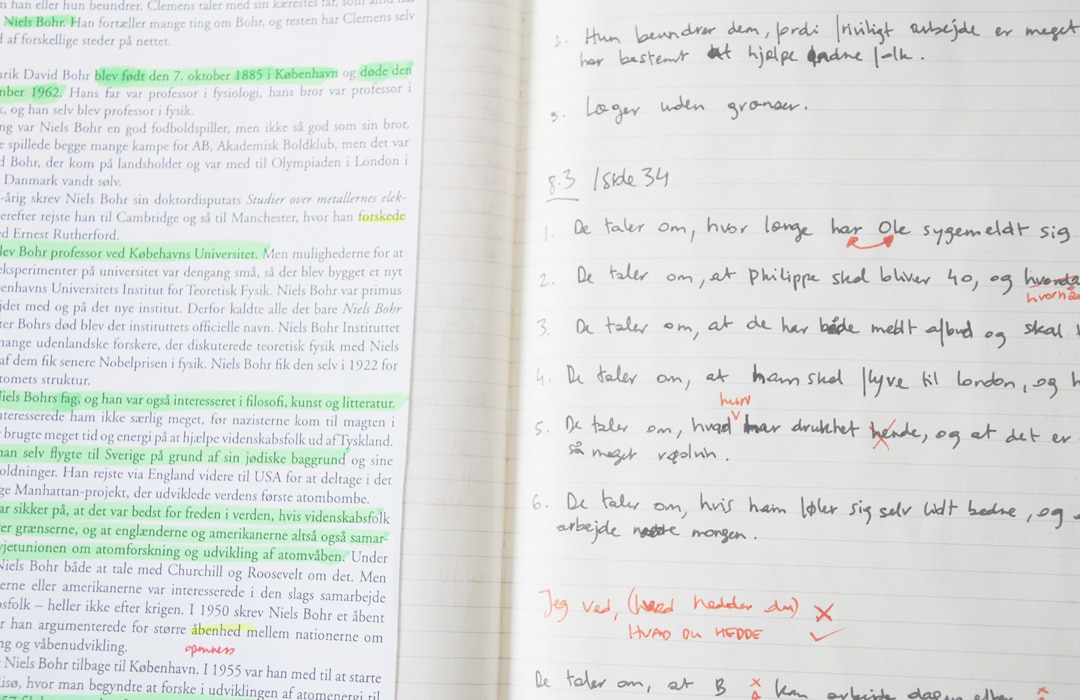 n han eller hun beundrer. Clemens taler med sin kærestes far, som
Niels Bohr. Han fortæller mange ting om Bohr, og resten har Clemens selv
af forskellige steder på nettet.
rik David Bohr blev født den 7. oktober 1885 i København og døde den
mber 1962. Hans far var professor i fysiologi, hans bror var professor i
, og han selv blev professor i fysik.
ng var Niels Bohr en god fodboldspiller, men ikke så god som sin bror,
e spillede begge mange kampe for AB, Akademisk Boldklub, men det var
d Bohr, der kom på landsholdet og var med til Olympiaden i London i
Danmark vandt sølv.
-årig skrev Niels Bohr sin doktordisputats Studier over metallernes elek-
erefter rejste han til Cambridge og så til Manchester, hvor han forskede
ed Ernest Rutherford.
lev Bohr professor ved Købehavns Universitet. Men mulighederne for at
ksperimenter på universitet var dengang små, så der blev bygget et nyt
enhavns Universitets Institut for Teoretisk Fysik. Niels Bohr var primus
jdet med og på det nye institut. Derfor kaldte alle det bare Niels Bohr
ter Bohrs død blev det instituttets officielle navn. Niels Bohr Instituttet
mange udenlandske forskere, der diskuterede teoretisk fysik med Niels
af dem fik senere Nobelprisen i fysik. Niels Bohr fik den selv i 1922 for
tomets struktur.
iels Bohrs fag, og han var også interesseret i filosofi, kunst og litteratur.
nteresserede ham ikke særlig meget, før nazisterne kom til magten i
brugte meget tid og energi på at hjælpe videnskabsfolk ud af Tyskland.
han selv flygte til Sverige på grund af sin jødiske baggrund og sine
oldninger. Han rejste via England videre til USA for at deltage i det
ge Manhattan-projekt, der udviklede verdens første atombombe.
ar sikker på, at det var bedst for freden i verden, hvis videnskabsfolk
er grænserne, og at englænderne og amerikanerne altså også samar-
vjetunionen om atomforskning og udvikling af atomvåben. Under
Niels Bohr både at tale med Churchill og Roosevelt om det. Men
erne eller amerikanerne var interesserede i den slags samarbejde
sfolk – heller ikke efter krigen. I 1950 skrev Niels Bohr et åbent
r han argumenterede for større åbenhed mellem nationerne om
ng og våbenudvikling.
openness
Niels Bohr tilbage til København. I 1955 var han med til at starte
isø, hvor man begyndte at forske i udviklingen af atomenergi til
Hun beundrer dem, fordi friviligt arbejde er meget
har bestemt at hjælpe andre folk.
3. Læger uden grænser.
8.3 /side 34
1. De taler om, hvor længe har Ole sygemeldt sig
2. De taler om, at Philippe skal bliver 40, og
3. De taler om, at de har både meldt afbud og skal
4. De taler om, at ham skal flyve til London, og h
hun
5. De taler om, hvad har drukket hende, og at det er
så meget
6. De taler om, hvis ham føler sig selv lidt bedre, og
arbejde morgen.
Jeg ved, (hvad hedder du) ✗
HVAD DU HEDDE ✓
De taler om, at B kan arbejde